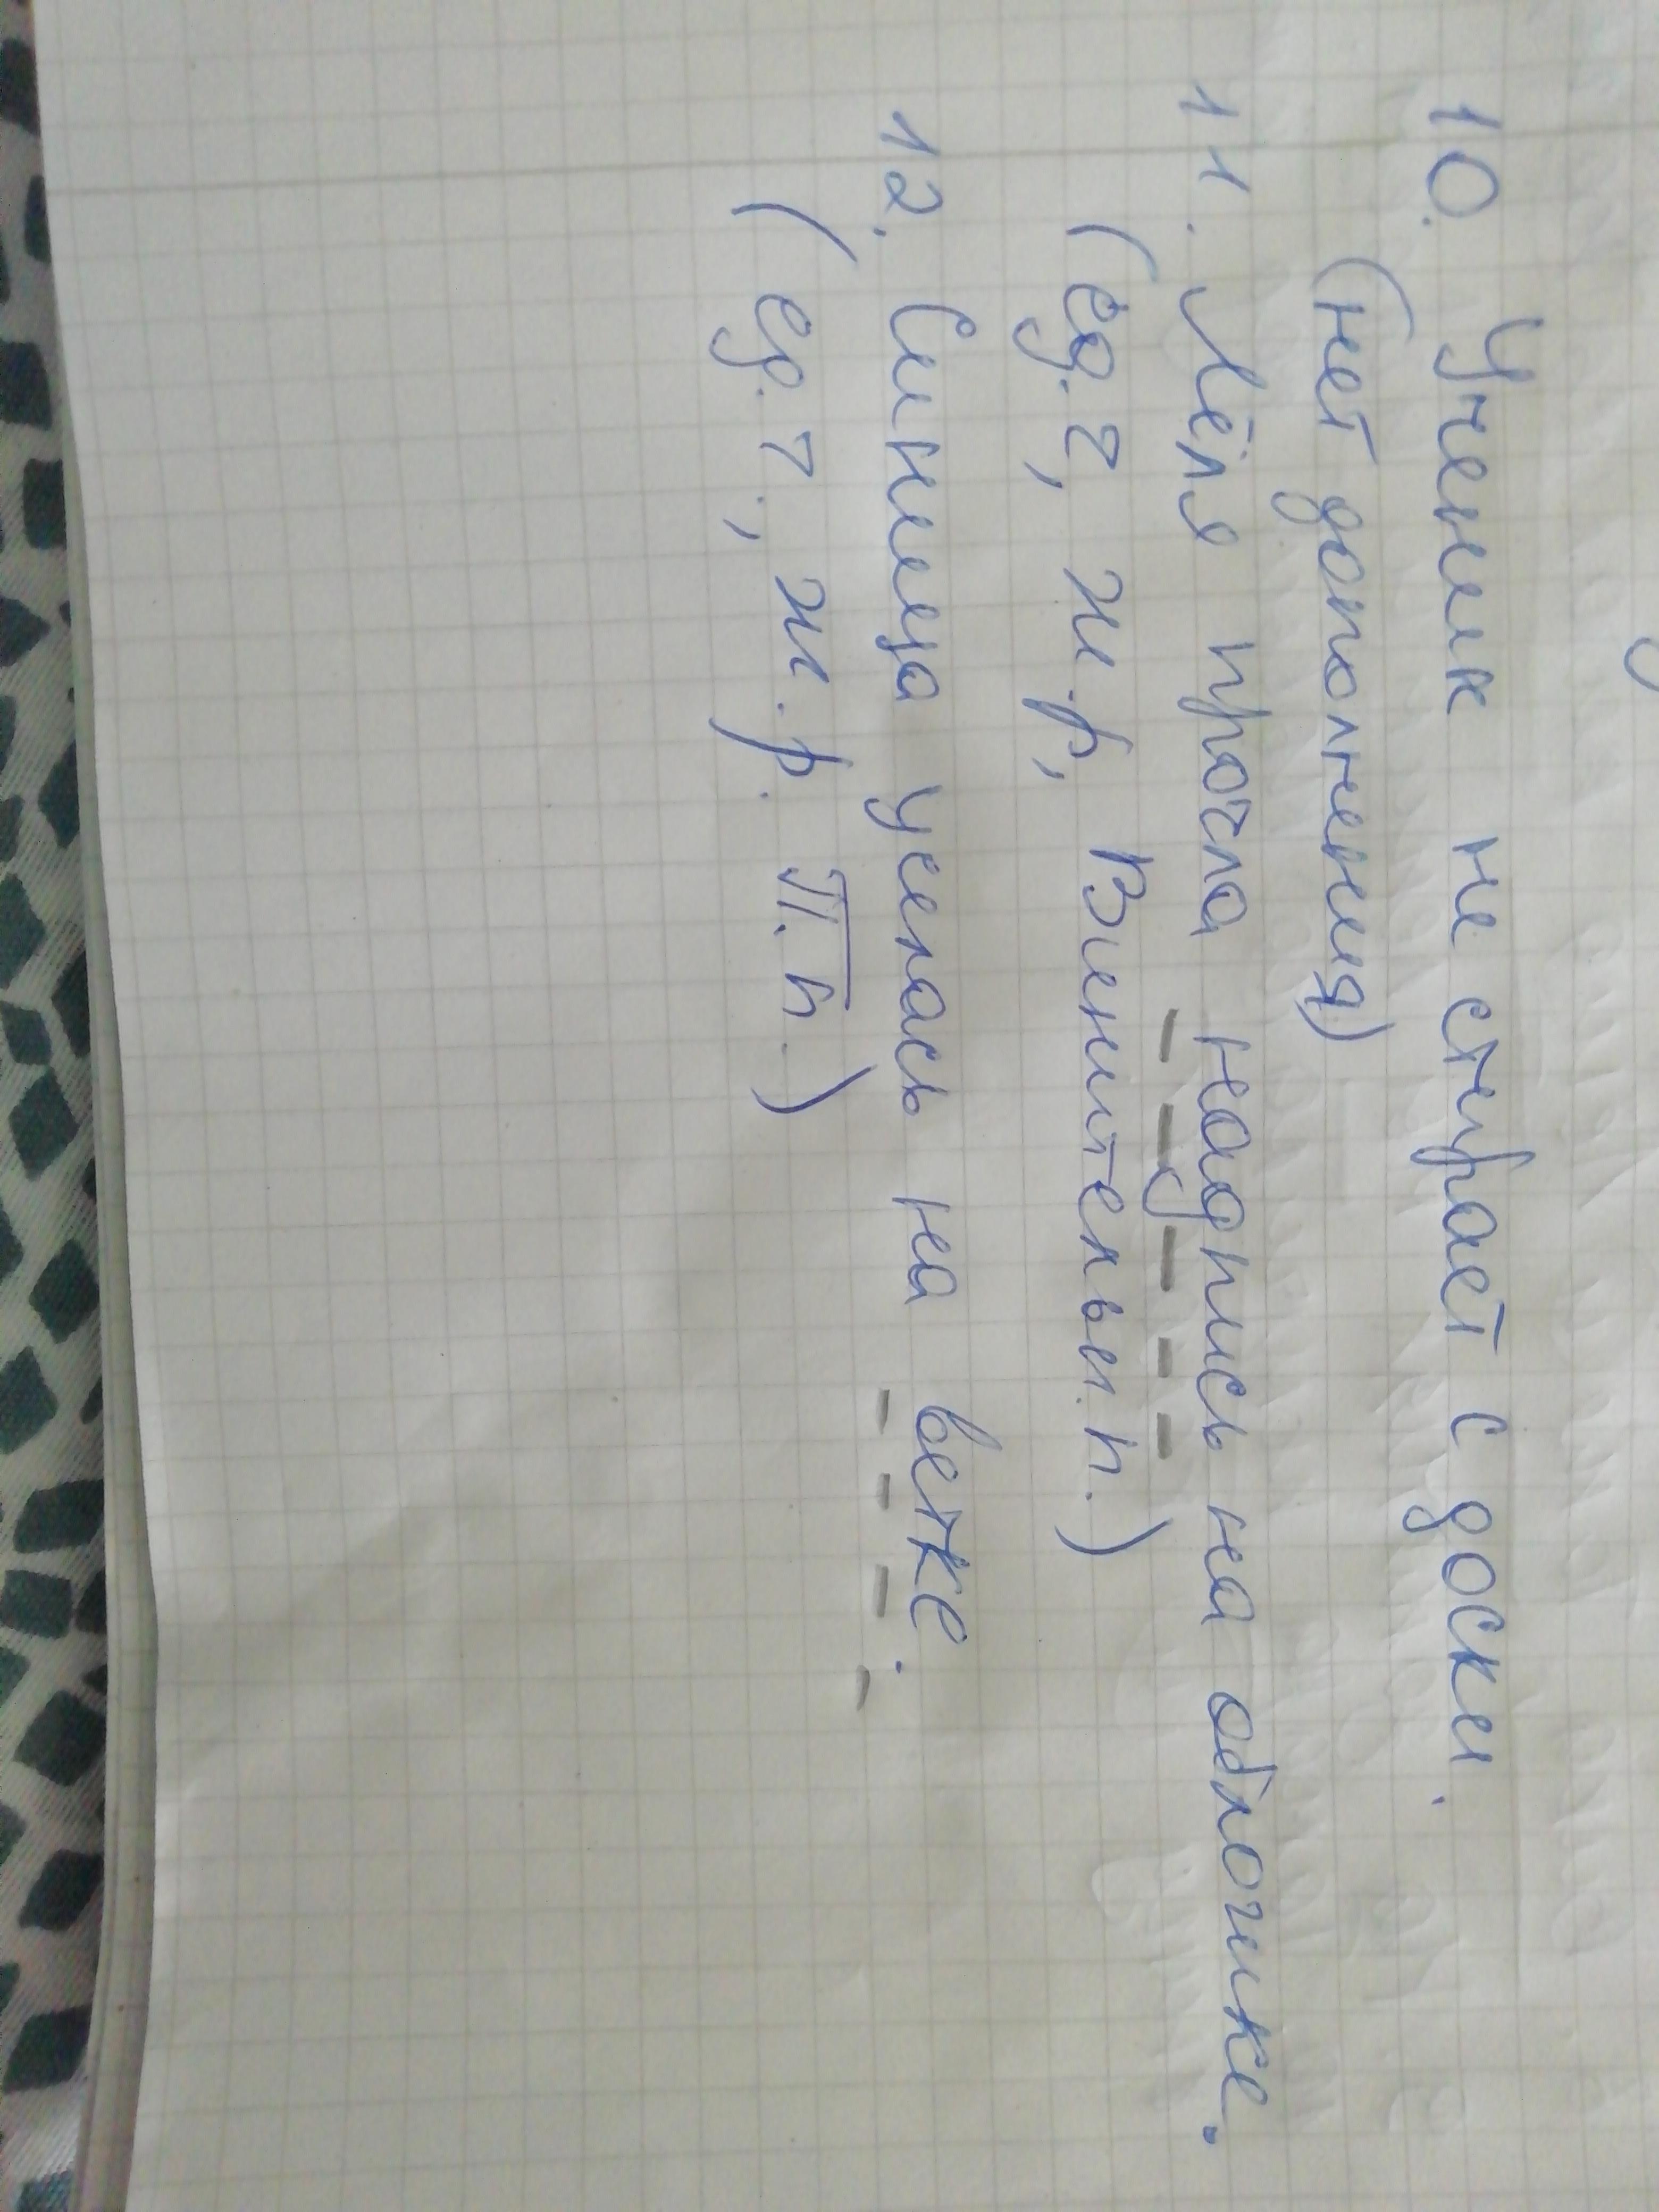 10. Ученик не стирает с доски.
(нет дополнения)
11. Лёля прочла надпись на обложке.
(ед.ч, ж.р, Винительн.п.)
12. Синица уселась на ветке.
(ед.ч., ж.р. П.п.)